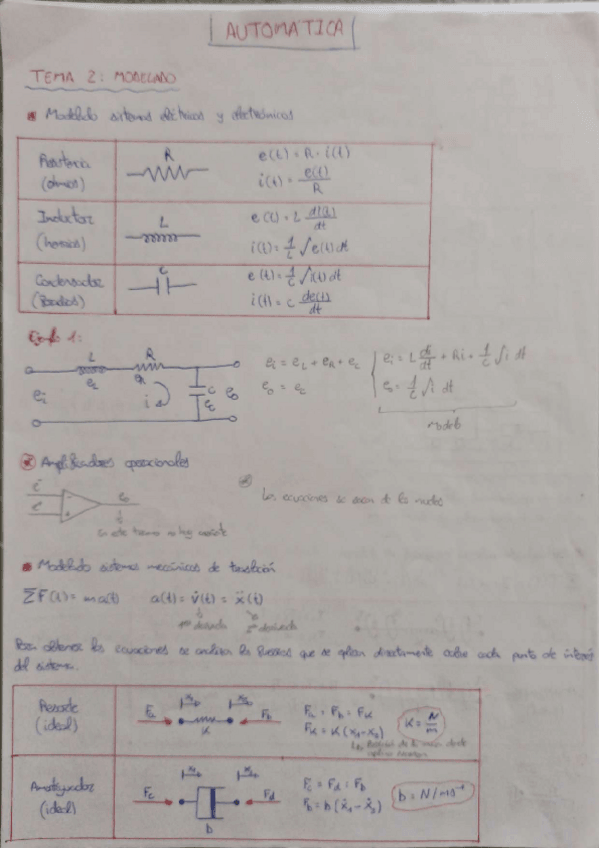 AUTOMATICA
TEMA 2: MODELADO
Modelado sistemas eléctricos y electrónicos
Resistencia (ohmios)
R
e(t) = R · i(t)
i(t) = e(t)/R
Inductor (henrios)
L
e(t) = L di(t)/dt
i(t) = 1/L ∫e(t)dt
Condensador (Faradios)
C
e(t) = 1/C ∫i(t)dt
i(t) = C de(t)/dt
Ejemplo 1:
L R
eL eR
ei i C ec eo
ei = eL + eR + ec
eo = ec
ei = L di/dt + Ri + 1/C ∫i dt
eo = 1/C ∫i dt
modelo
Amplificadores operacionales
e⁻
e⁺
eo
en este tramo no hay corriente
Las ecuaciones se sacan de los nudos
Modelado sistemas mecánicos de translación
ΣF(t) = m a(t) a(t) = v̇(t) = ẍ(t)
1ª derivada 2ª derivada
Para obtener las ecuaciones se analiza las fuerzas que se aplican directamente sobre cada punto de interés
del sistema.
Resorte (ideal)
x1 x2
Fa K Fb
Fa = Fb = FK
FK = K(x1-x2)
K = N/m
Amortiguador (ideal)
x1 x2
Fc b Fd
Fc = Fd = Fb
Fb = b(ẋ1-ẋ2)
b = N/ms⁻¹